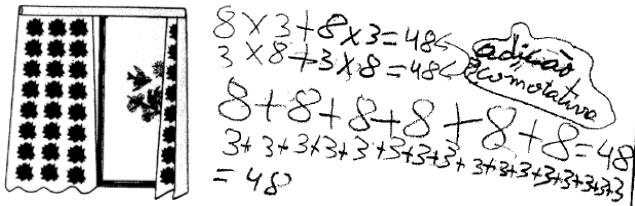 8 × 3 + 8 × 3 = 48
3 × 8 + 3 × 8 = 48
adição
comotativa
8 + 8 + 8 + 8 + 8 + 8 = 48
3 + 3 + 3 + 3 + 3 + 3 + 3 + 3 + 3 + 3 + 3 + 3 + 3 + 3 + 3
= 48